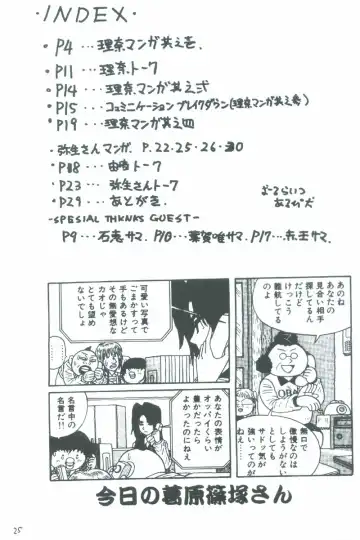 ・INDEX・
・P4…理奈マンガ其之壱.
・P11…理奈トーク
・P14…理奈マンガ其之弐
・P15…コミュニケーションブレイクダウン(理奈マンガ其之参)
・P19…理奈マンガ其之四
・弥生さんマンガ. P.22.25.26.30
・P18…由綺トーク
・P23…弥生さんトーク
・P29…あとがき.
おーるらいつ
あるびだ
-SPESIAL THKNKS GUEST-
P9…石恵サマ. P10…葉賀唯サマ. P17…
あのね
あなたの
見合い相手
探してるん
だけど
けっこう
難航してる
のよ
無口で
傲慢なのは
しょうがない
としても
サドッ気が
強いってのが
ねえ…
可愛い写真で
ごまかすって
手もあるけど
その無愛想な
カオじゃ
とても望め
ないでしょ
あなたの表情が
オッパイくらい
豊かだったら
よかったのにねえ
名言だ!!
名言中の
今日の葛原篠塚さん
25